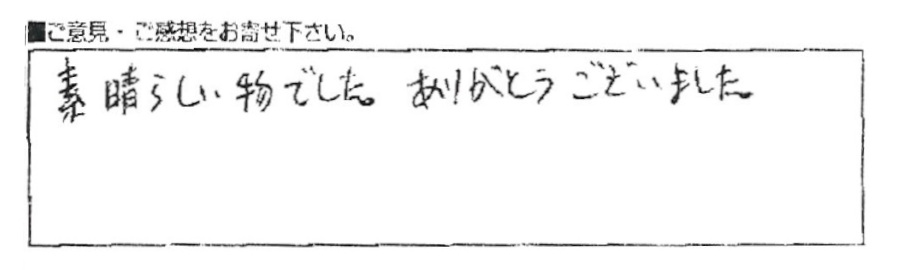 ■ご意見・ご感想をお寄せ下さい。
素晴らしい物でした。ありがとうございました。